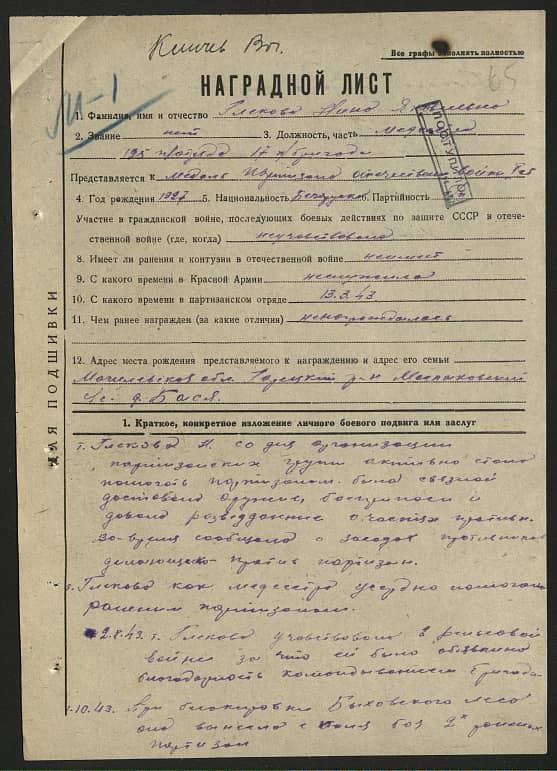 Все графы заполнять полностью
65
М-1
НАГРАДНОЙ ЛИСТ
1. Фамилия, имя и отчество Глекова Нина
2. Звание нет 3. Должность, часть Медсестра
ПОСТУПИЛО
Представляется к Медаль Партизана отечественной войны
4. Год рождения 1927 5. Национальность Белоруска Партийность
Участие в гражданской войне, последующих боевых действиях по защите СССР в отече-
ственной войне (где, когда) неучаствовала
8. Имеет ли ранения и контузии в отечественной войне неимеет
9. С какого времени в Красной Армии неслужила
10. С какого времени в партизанском отряде 13.3.43
11. Чем ранее награжден (за какие отличия) ненаграждалась
12. Адрес места рождения представляемого к награждению и адрес его семьи
Могилевская обл. Горецкий р-н
с/с д. Бася.
ДЛЯ ПОДШИВКИ
1. Краткое, конкретное изложение личного боевого подвига или заслуг
т. Глекова Н. со дня организации
партизанских групп активно стала
помогать партизанам. была связной
доставала оружие, боеприпасы и
давала разведданные о частях противн.
во-время сообщала о засадах противника
против партизан.
Глекова как медсестра усердно помогала
раненым партизанам.
2.8.43 г. Глекова участвовала в рельсовой
войне за что ей была объявлена
благодарность командыванием бригады
10.43. При блокировке Быховского леса
она вынесла с поля боя 2х раненых
партизан